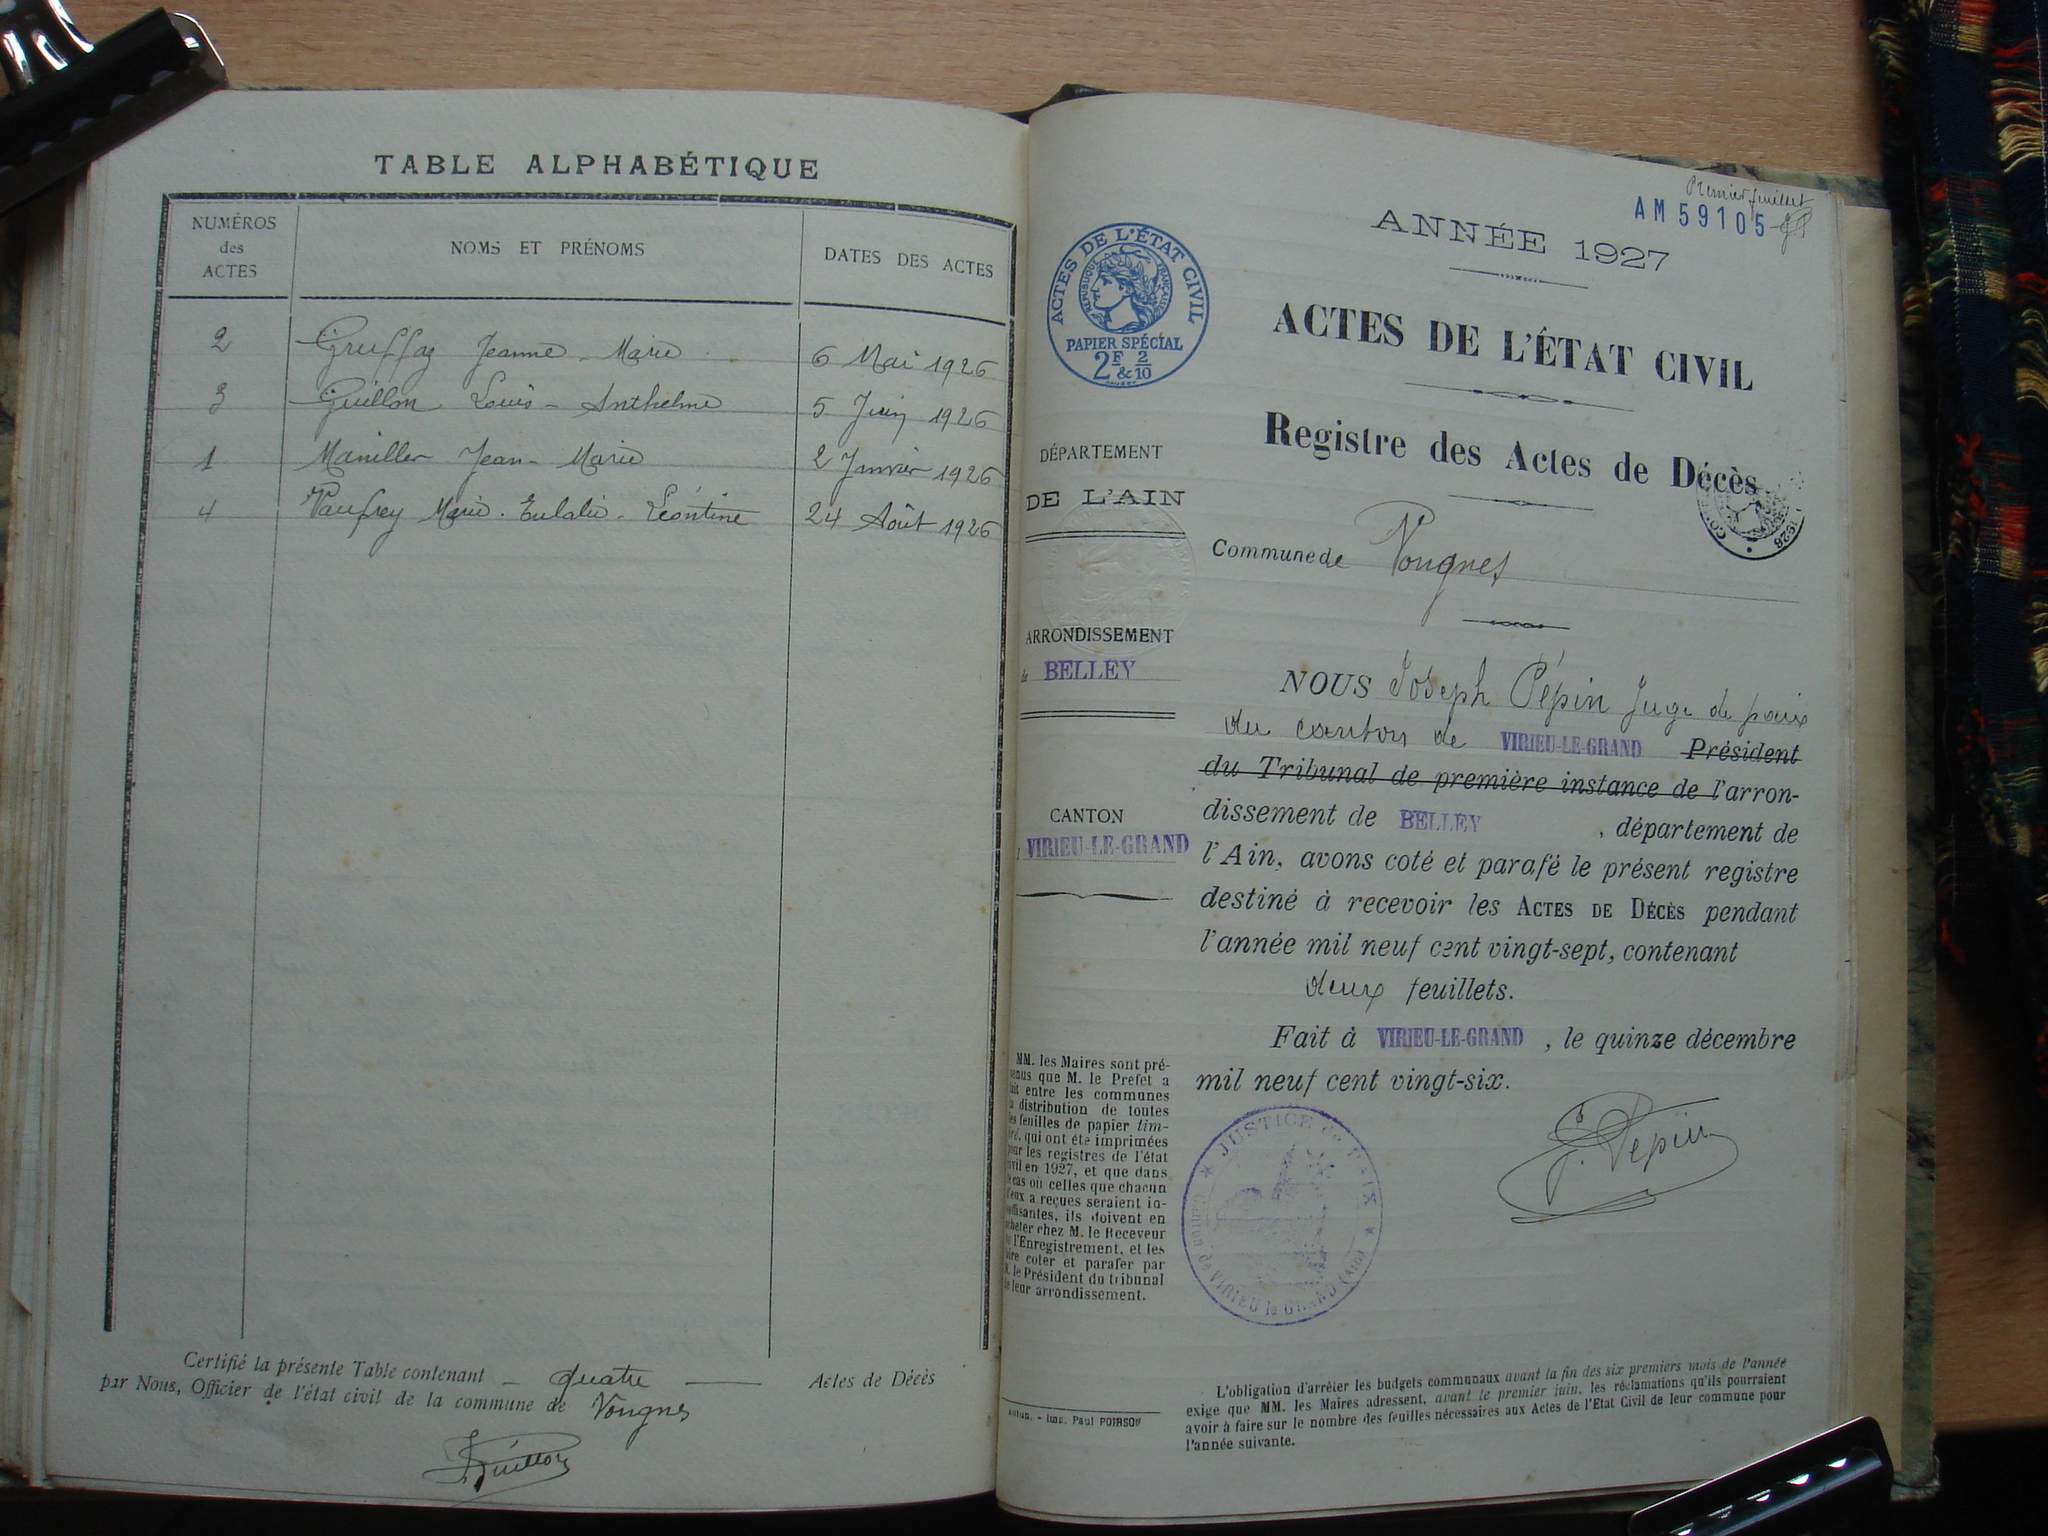 TABLE ALPHABÉTIQUE
NUMÉROS des ACTES
NOMS ET PRÉNOMS
DATES DES ACTES
2 Gruffaz Jeanne-Marie 6 Mai 1926
3 Guillon Louis-Anthelme 5 Juin 1926
1 Maniller Jean-Marie 2 Janvier 1926
4 Vaufrey Marie-Eulalie-Léontine 24 Août 1926
Certifié la présente Table contenant quatre Actes de Décès
par Nous, Officier de l'état civil de la commune de Vongnes
Guillon
Premier feuillet
AM 59105
ANNÉE 1927
ACTES DE L'ÉTAT CIVIL
RÉPUBLIQUE FRANÇAISE
PAPIER SPÉCIAL
2F & 2/10
ACTES DE L'ÉTAT CIVIL
Registre des Actes de Décès
1926
DÉPARTEMENT
DE L'AIN
Commune de Vongnes
ARRONDISSEMENT
de BELLEY
CANTON
VIRIEU-LE-GRAND
NOUS Joseph Pépin Juge de paix
du canton de VIRIEU-LE-GRAND Président
du Tribunal de première instance de l'arron-
dissement de BELLEY, département de
l'Ain, avons coté et parafé le présent registre
destiné à recevoir les ACTES DE DÉCÈS pendant
l'année mil neuf cent vingt-sept, contenant
deux feuillets.
Fait à VIRIEU-LE-GRAND, le quinze décembre
mil neuf cent vingt-six.
J. Pépin
JUSTICE de PAIX
Canton de VIRIEU le GRAND (Ain)
MM. les Maires sont pré-
venus que M. le Préfet a
fait entre les communes
la distribution de toutes
les feuilles de papier tim-
bré, qui ont été imprimées
pour les registres de l'état
civil en 1927, et que dans
le cas où celles que chacun
d'eux a reçues seraient in-
suffisantes, ils doivent en
acheter chez M. le Receveur
de l'Enregistrement, et les
faire coter et parafer par
M. le Président du tribunal
de leur arrondissement.
Imp. Paul POIRSON
L'obligation d'arrêter les budgets communaux avant la fin des six premiers mois de l'année
exige que MM. les Maires adressent, avant le premier juin, les réclamations qu'ils pourraient
avoir à faire sur le nombre des feuilles nécessaires aux Actes de l'Etat Civil de leur commune pour
l'année suivante.